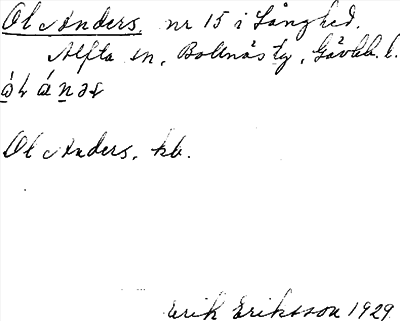 Ol Anders, nr 15 i Långhed.
Alfta sn, Bollnäs tg, Gävleb. l.
Ol Anders, kb.
Erik Eriksson 1929